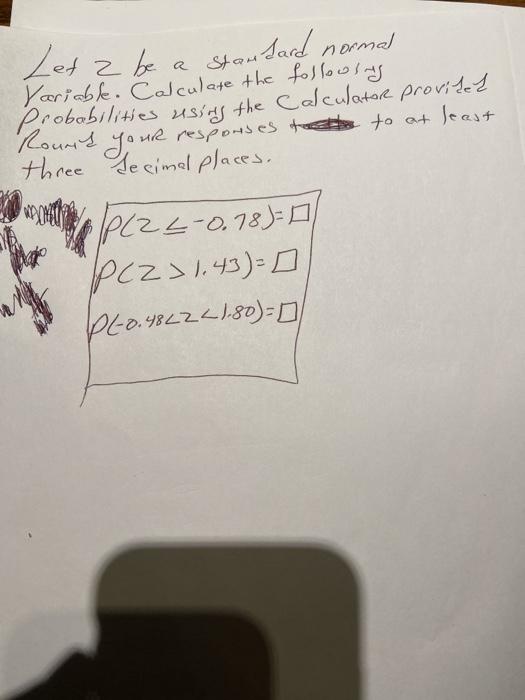 Let Z be a standard normal
Variable. Calculate the following
Probabilities using the Calculator provided
Round your responses to at least
three decimal places.
P(Z ≤ -0.78)=□
P(Z > 1.43)=□
P(-0.48<Z<1.80)=□